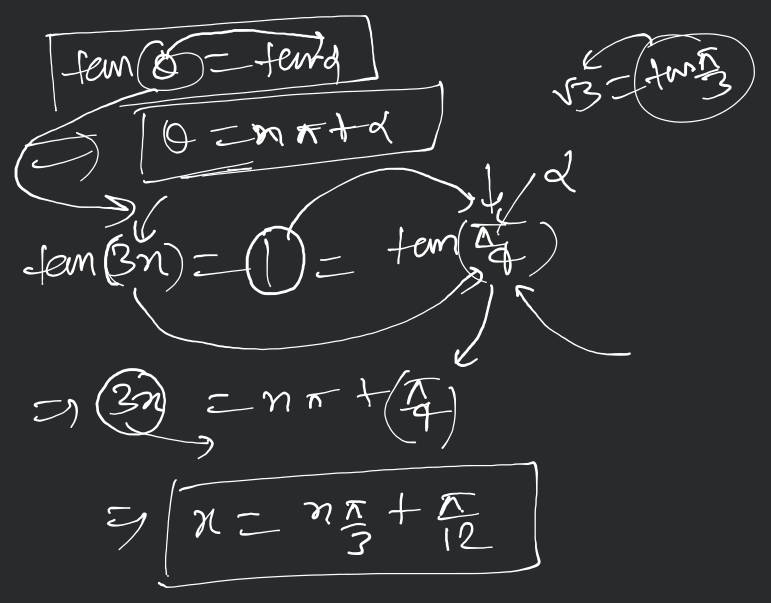 tan(θ) = tanα
√3 = tan π/3
⇒ θ = nπ + α
α
tan(3x) = 1 = tan(π/4)
⇒ 3x = nπ + (π/4)
⇒ x = nπ/3 + π/12